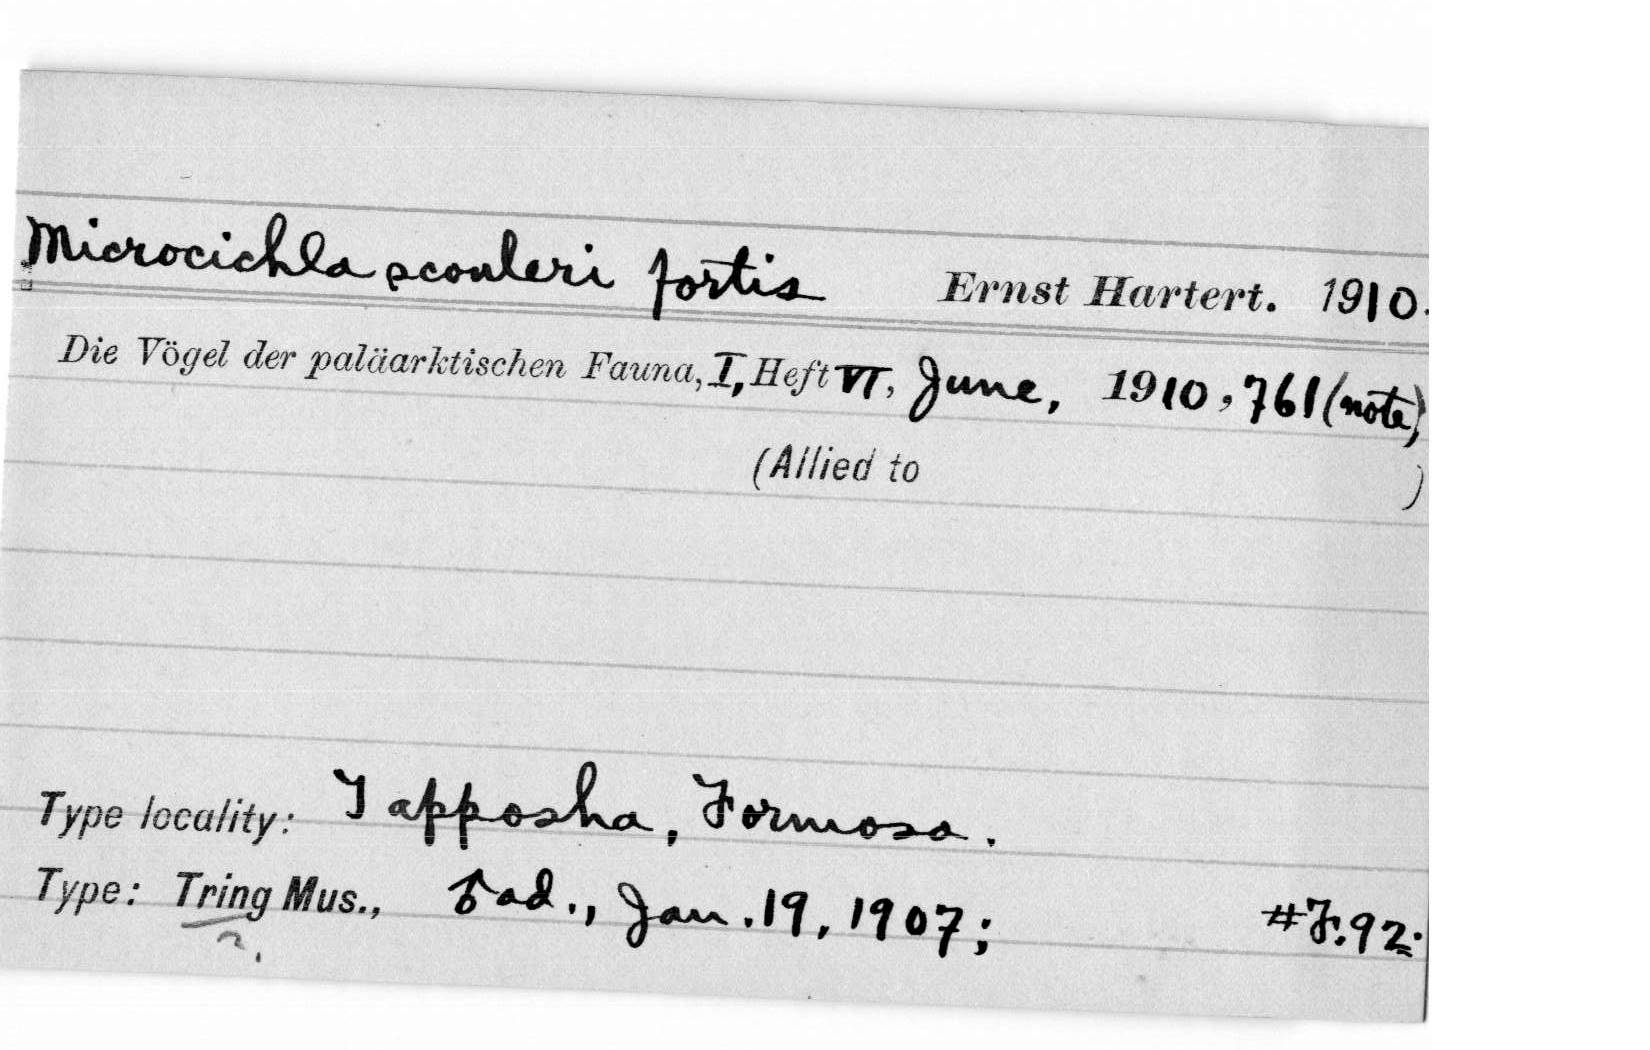 Microcichla scouleri fortis Ernst Hartert. 1910.
Die Vögel der paläarktischen Fauna, I, Heft VI, June, 1910, 761 (note)
(Allied to )
Type locality: Tapposha, Formosa.
Type: Tring Mus., ♂ ad., Jan. 19, 1907; #F.92.
?